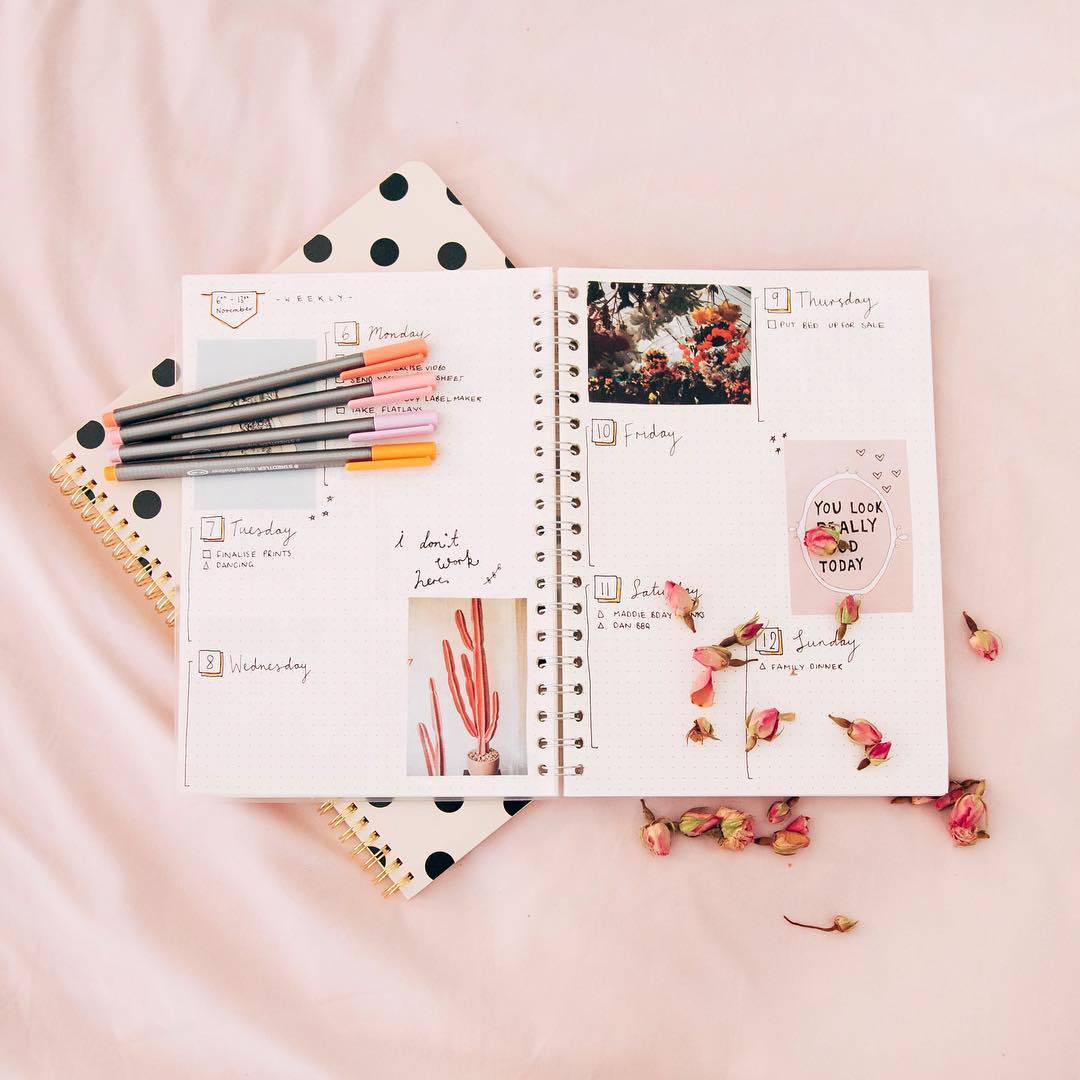 6TH - 13TH
November
- WEEKLY -
6 Monday
VIDEO
SEND SHEET
LABEL MAKER
TAKE FLATLAYS
STAEDTLER triplus fineliner
7 Tuesday
FINALISE PRINTS
DANCING
i don't
work
here
8 Wednesday
9 Thursday
PUT BED UP FOR SALE
10 Friday
YOU LOOK
REALLY
TODAY
11 Saturday
MADDIE BDAY
DAN BBQ
12 Sunday
FAMILY DINNER